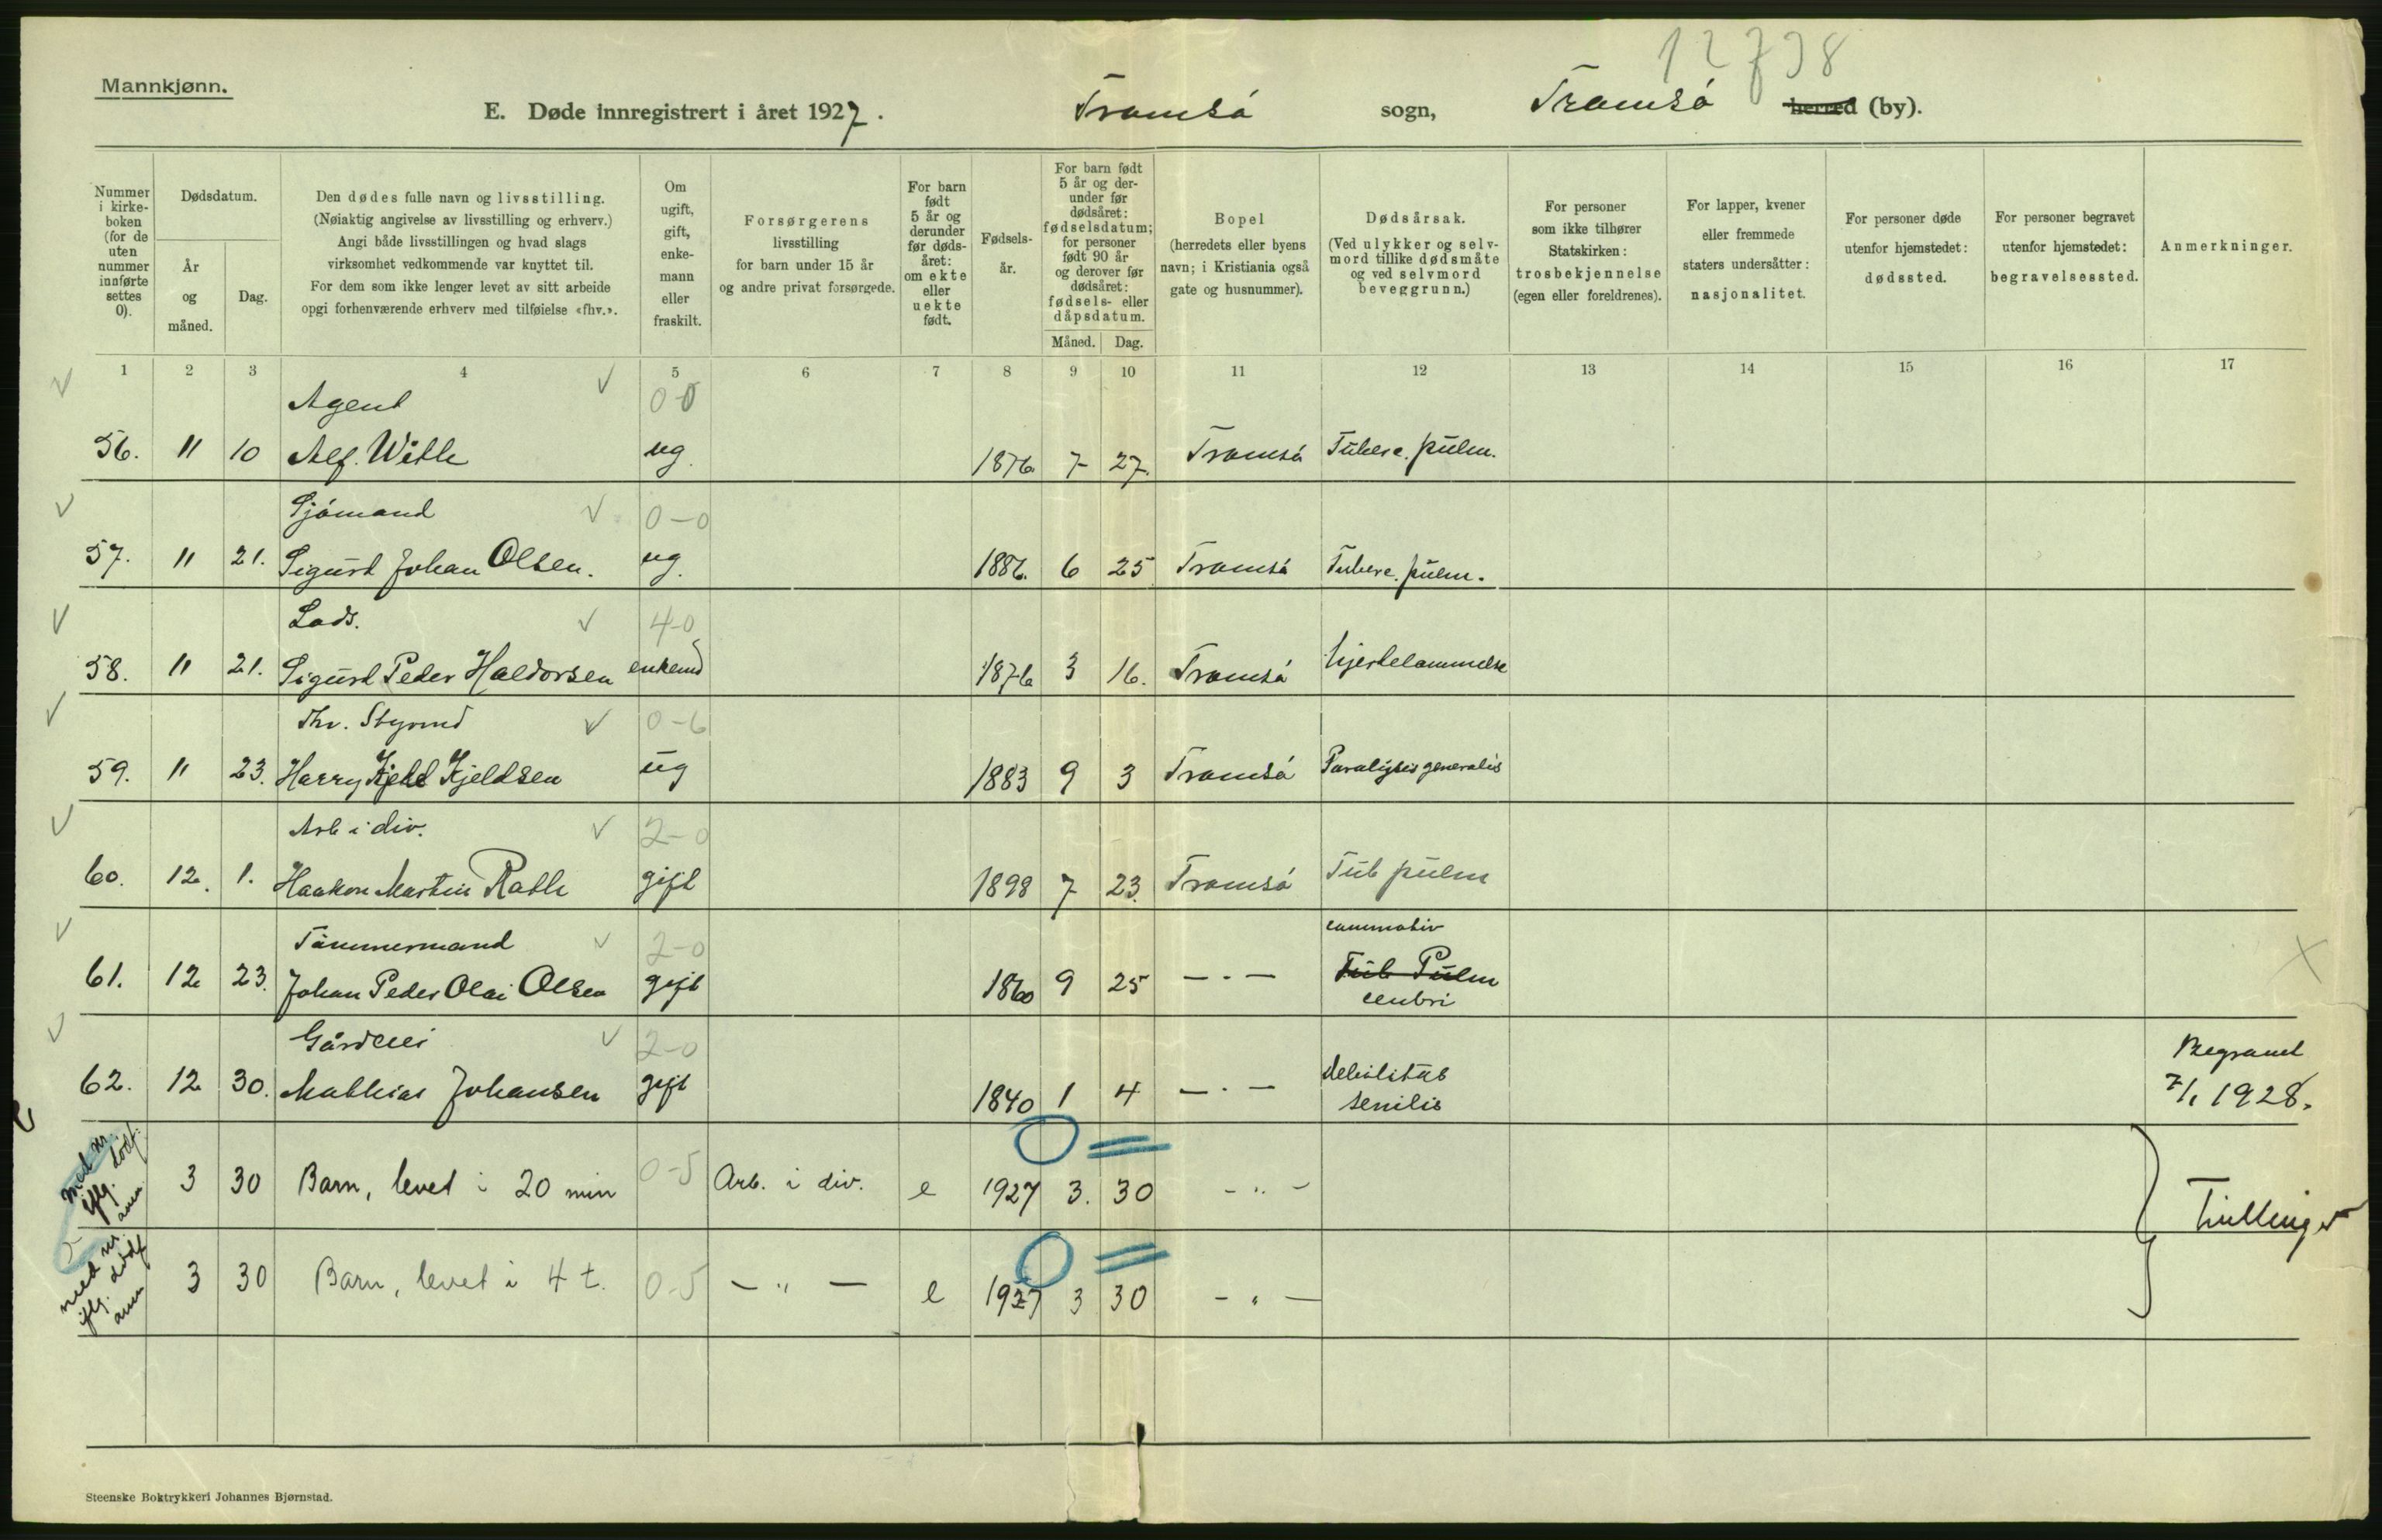 12798
Mannkjønn.
E. Døde innregistrert i året 1927. Tromsø sogn, Tromsø herred (by).
Nummer i kirkeboken (for de uten nummer innførte settes 0).
Dødsdatum.
År og måned.
Dag.
Den dødes fulle navn og livsstilling.
(Nøiaktig angivelse av livsstilling og erhverv.)
Angi både livsstillingen og hvad slags
virksomhet vedkommende var knyttet til.
For dem som ikke lenger levet av sitt arbeide
opgi forhenværende erhverv med tilføielse «fhv.».
Om ugift, gift, enkemann eller fraskilt.
Forsørgerens
livsstilling
for barn under 15 år
og andre privat forsørgede.
For barn født 5 år og derunder før dødsåret: om ekte eller uekte født.
Fødselsår.
For barn født 5 år og derunder før dødsåret: fødselsdatum; for personer født 90 år og derover før dødsåret: fødsels- eller dåpsdatum.
Måned. Dag.
Bopel
(herredets eller byens
navn; i Kristiania også
gate og husnummer).
Dødsårsak.
(Ved ulykker og selvmord tillike dødsmåte
og ved selvmord
beveggrunn.)
For personer
som ikke tilhører
Statskirken:
trosbekjennelse
(egen eller foreldrenes).
For lapper, kvener
eller fremmede
staters undersåtter:
nasjonalitet.
For personer døde
utenfor hjemstedet:
dødssted.
For personer begravet
utenfor hjemstedet:
begravelsessted.
Anmerkninger.
1 2 3 4 5 6 7 8 9 10 11 12 13 14 15 16 17
Agent 0-0
56. 11 10 Alf. Witth ug. 1876 7 27. Tromsø Tuberc. pulm.
Sjómand 0-0
57. 11 21. Sigurd Johan Olsen. ug. 1886. 6 25 Tromsø Tuberc. pulm.
Lods. 4-0
58. 11 21. Sigurd Peder Haldorsen enkemd 1876 3 16. Tromsø hjertelammelse
Fhv. Styrmd 0-6
59. 11 23. Harry Kjeld Kjeldsen ug 1883 9 3 Tromsø Paralysis generalis
Arb i div. 2-0
60. 12. 1. Haakon Martin Rath gift 1898 7 23. Tromsø Tub pulm
Tømmermand 2-0
61. 12 23. Johan Peder Olai Olsen gift 1860 9 25 — · — Tub Pulm
Gårdeei 2-0
62. 12 30. Mathias Johansen gift 1840 1 4 — · — debilitas
senilis
Begravet
7/1 1928.
med nr.
iflg. dødf.
anm
3 30 Barn, levet i 20 min 0-5 Arb. i div. e 1927 3. 30 - " -
Trillinger
med nr.
iflg. dødf
anm
3 30 Barn, levet i 4 t. 0-5 — " — e 1927 3 30 - " —
Steenske Boktrykkeri Johannes Bjørnstad.